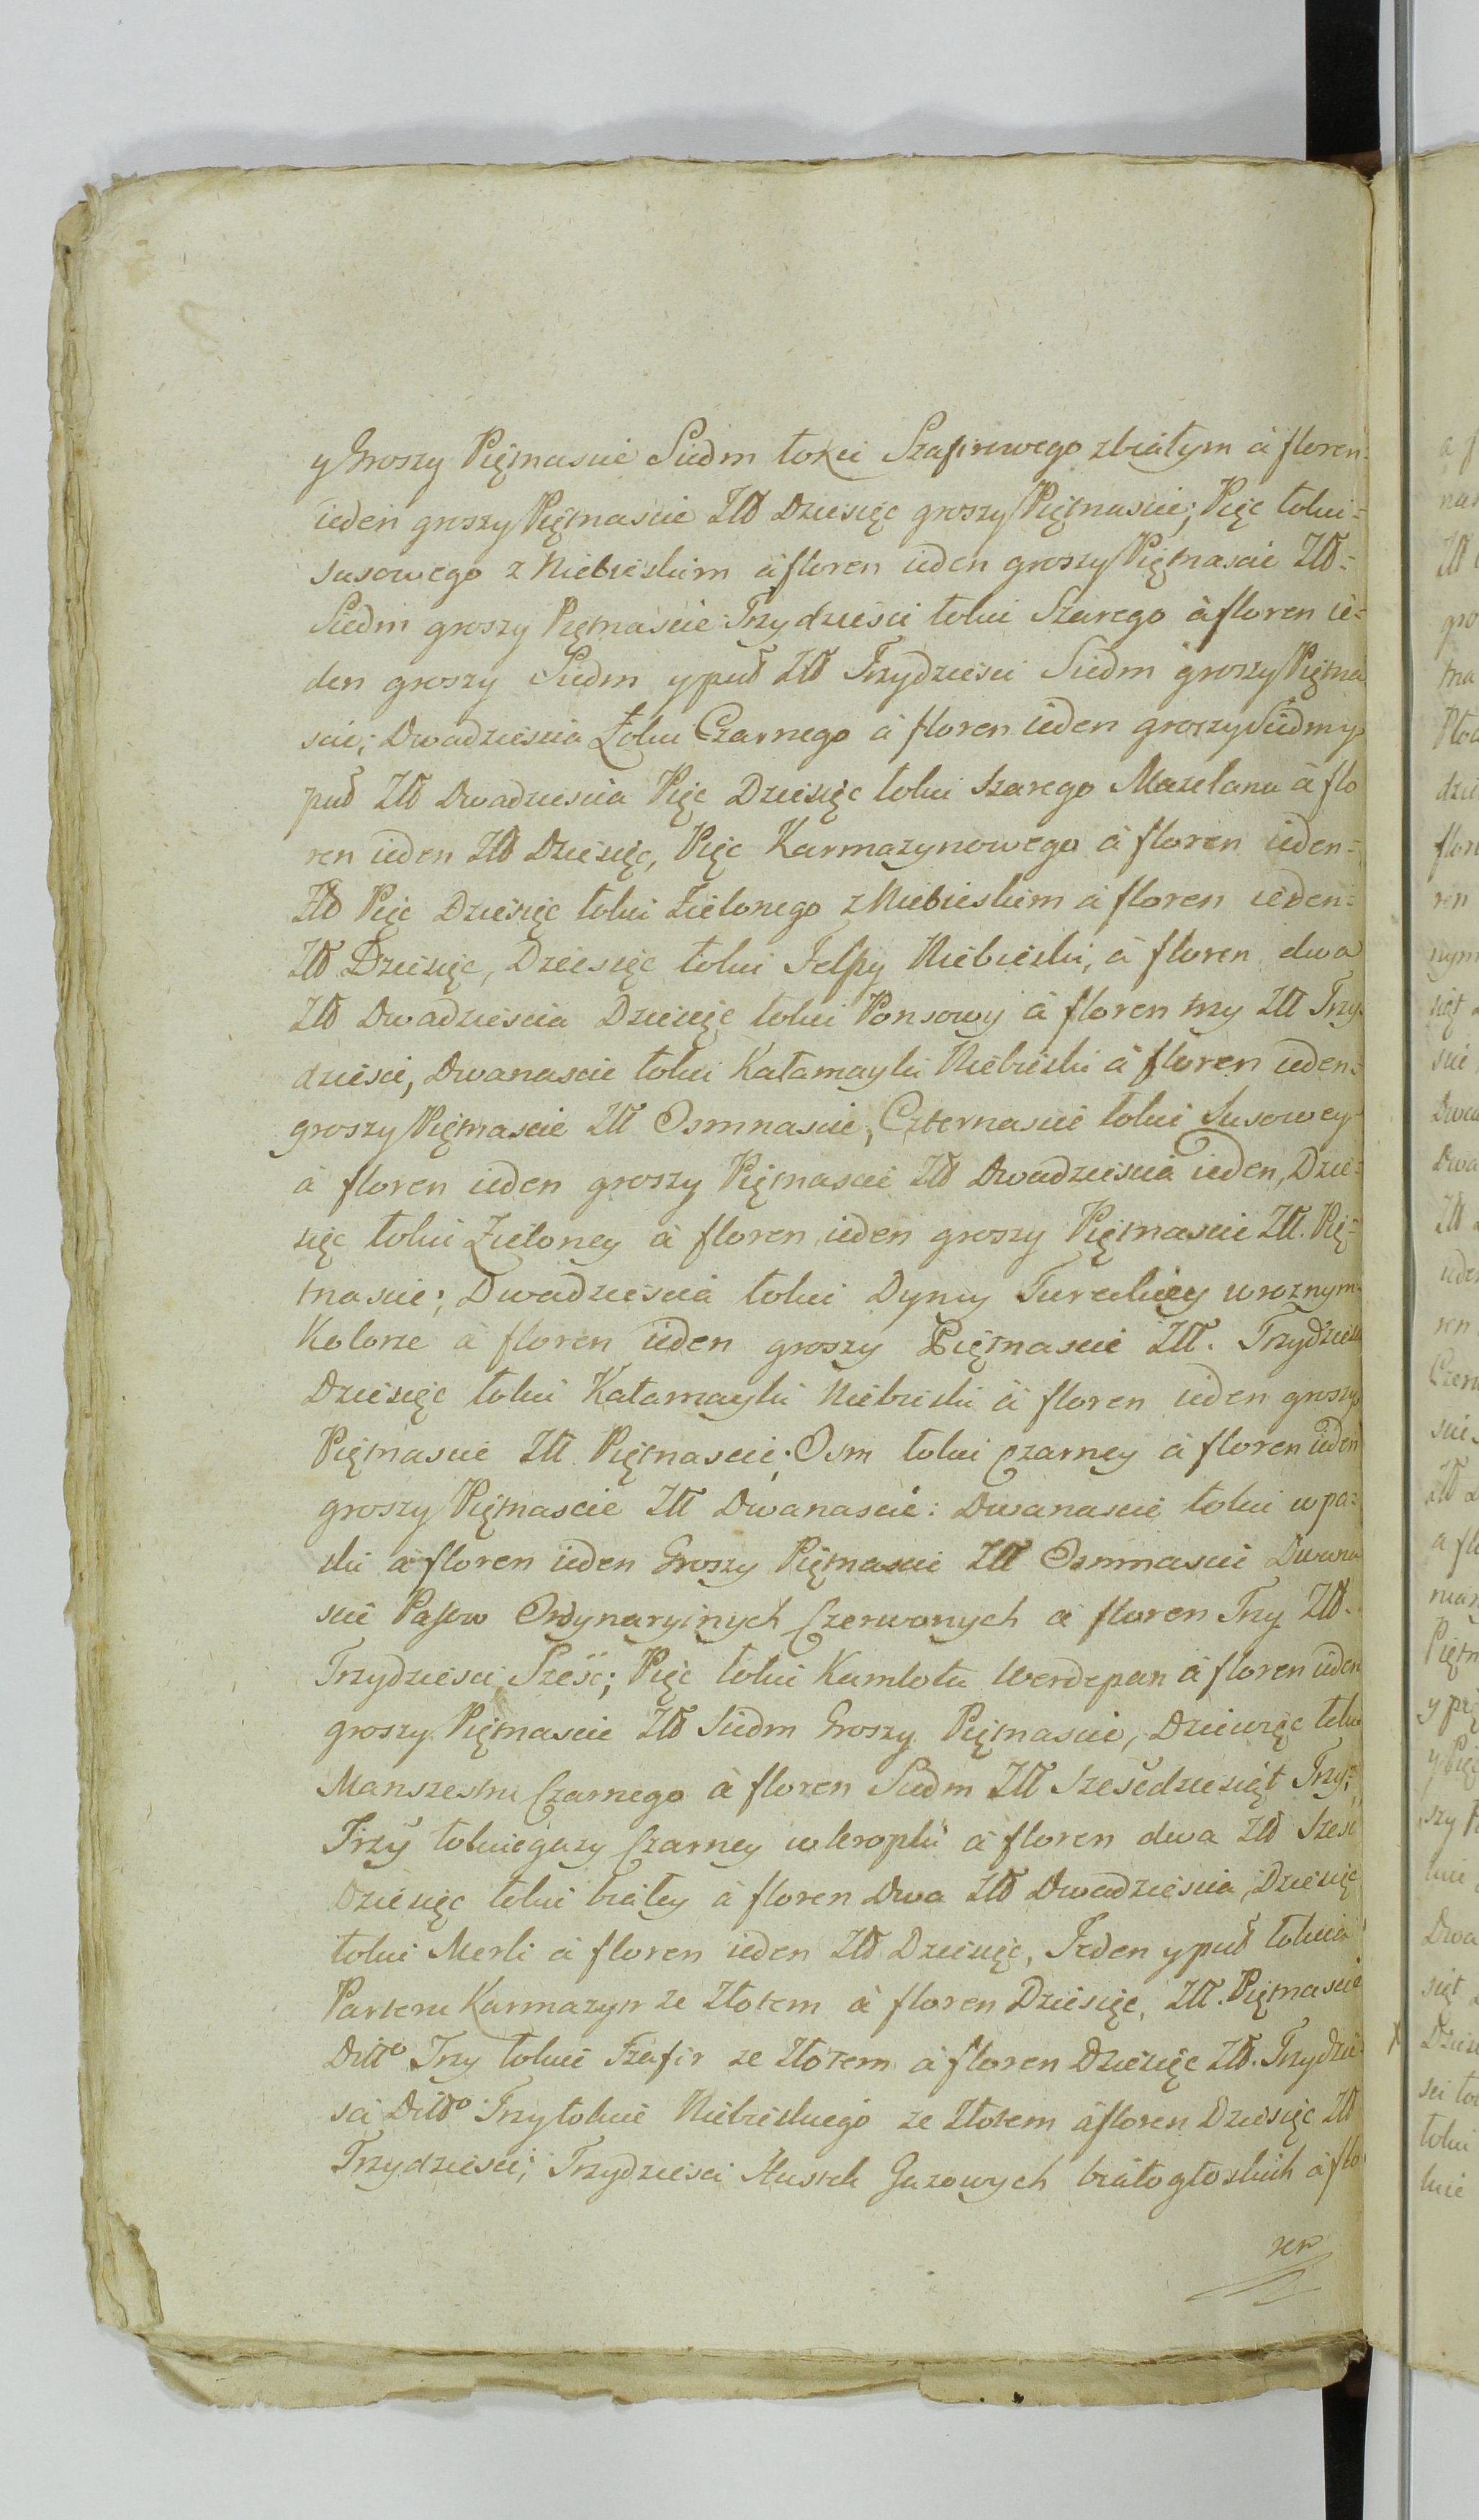 y Groszy Piętnascie Siedm łokci Szafirowego z białym à floren
ieden groszy Piętnascie Złł Dziesięc groszy Piętnascie; Pięc łokci=
susowego z Niebieskim à floren ieden groszy Piętnascie Złł=
Siedm groszy Piętnascie Trzydziesci łokci Szarego à floren ie=
den groszy Siedm y puł Złł Trzydziesci Siedm groszy Piętna
scie; Dwadziescia Łokci Czarnego à floren ieden groszy Siedm y
puł Złł Dwadziescia Pięc Dziesięc łokci Szarego Mazelanu à flo
ren ieden Złł Dziesięc, Pięc Karmazynowego à floren ieden=
Złł Pięc Dziesięc łokci Zielonego z Niebieskim à floren ieden=
Złł Dziesięc, Dziesięc łokci Felpy Niebieski, à floren dwa
Złł Dwadziescia Dziesięc łokci Ponsowy à floren trzy Złł Trzy
dziesci, Dwanascie łokci Kałamayki Niebieski à floren ieden=
groszy Piętnascie Złł Osmnascie, Czternascie łokci Susowey
à floren ieden groszy Piętnascie Złł Dwadziescia ieden, Dzie=
sięc łokci Zieloney à floren ieden groszy Piętnascie Złł. Pię=
tnascie; Dwadziescia łokci Dymy Tureckiey w roznym
Kolorze à floren ieden groszy Piętnascie Złł. Trzydziesci
Dziesięc łokci Kałamayki Niebieski à floren ieden groszy
Piętnascie Złł Piętnascie; Osm łokci Czarney à floren ieden
groszy Piętnascie Złł Dwanascie: Dwanascie łokci w pa=
ski à floren ieden Groszy Piętnascie Złł Osmnascie Dwana
scie Pasow Ordynaryinych Czerwonych à floren Trzy Złł.
Trzydziesci Szesć; Pięc łokci Kamlotu Werdepan à floren ieden
groszy Piętnascie Złł Siedm Groszy Piętnascie, Dziewięc łokci
Manszestru Czarnego à floren Siedm Złł Szescdziesiąt Trzy;
Trzy łokcie gazy Czarney w kropki à floren dwa Złł Szesc
Dziesięc łokci białey à floren Dwa Złł Dwadziescia, Dziesięc
łokci Merli à floren ieden Złł Dziesięc, Jeden y puł łokcia
Parteru Karmazyn ze Złotem à floren Dziesięc, Złł. Piętnascie
Ditto Trzy łokcie Szafir ze Złotem à floren Dziesięc Złł. Trzydzie
sci Ditto Trzy łokcie Niebieskiego ze Złotem à floren Dziesięc Złł
Trzydziesci; Trzydziesci Hustek Gazowych białogłoskich à flo
ren